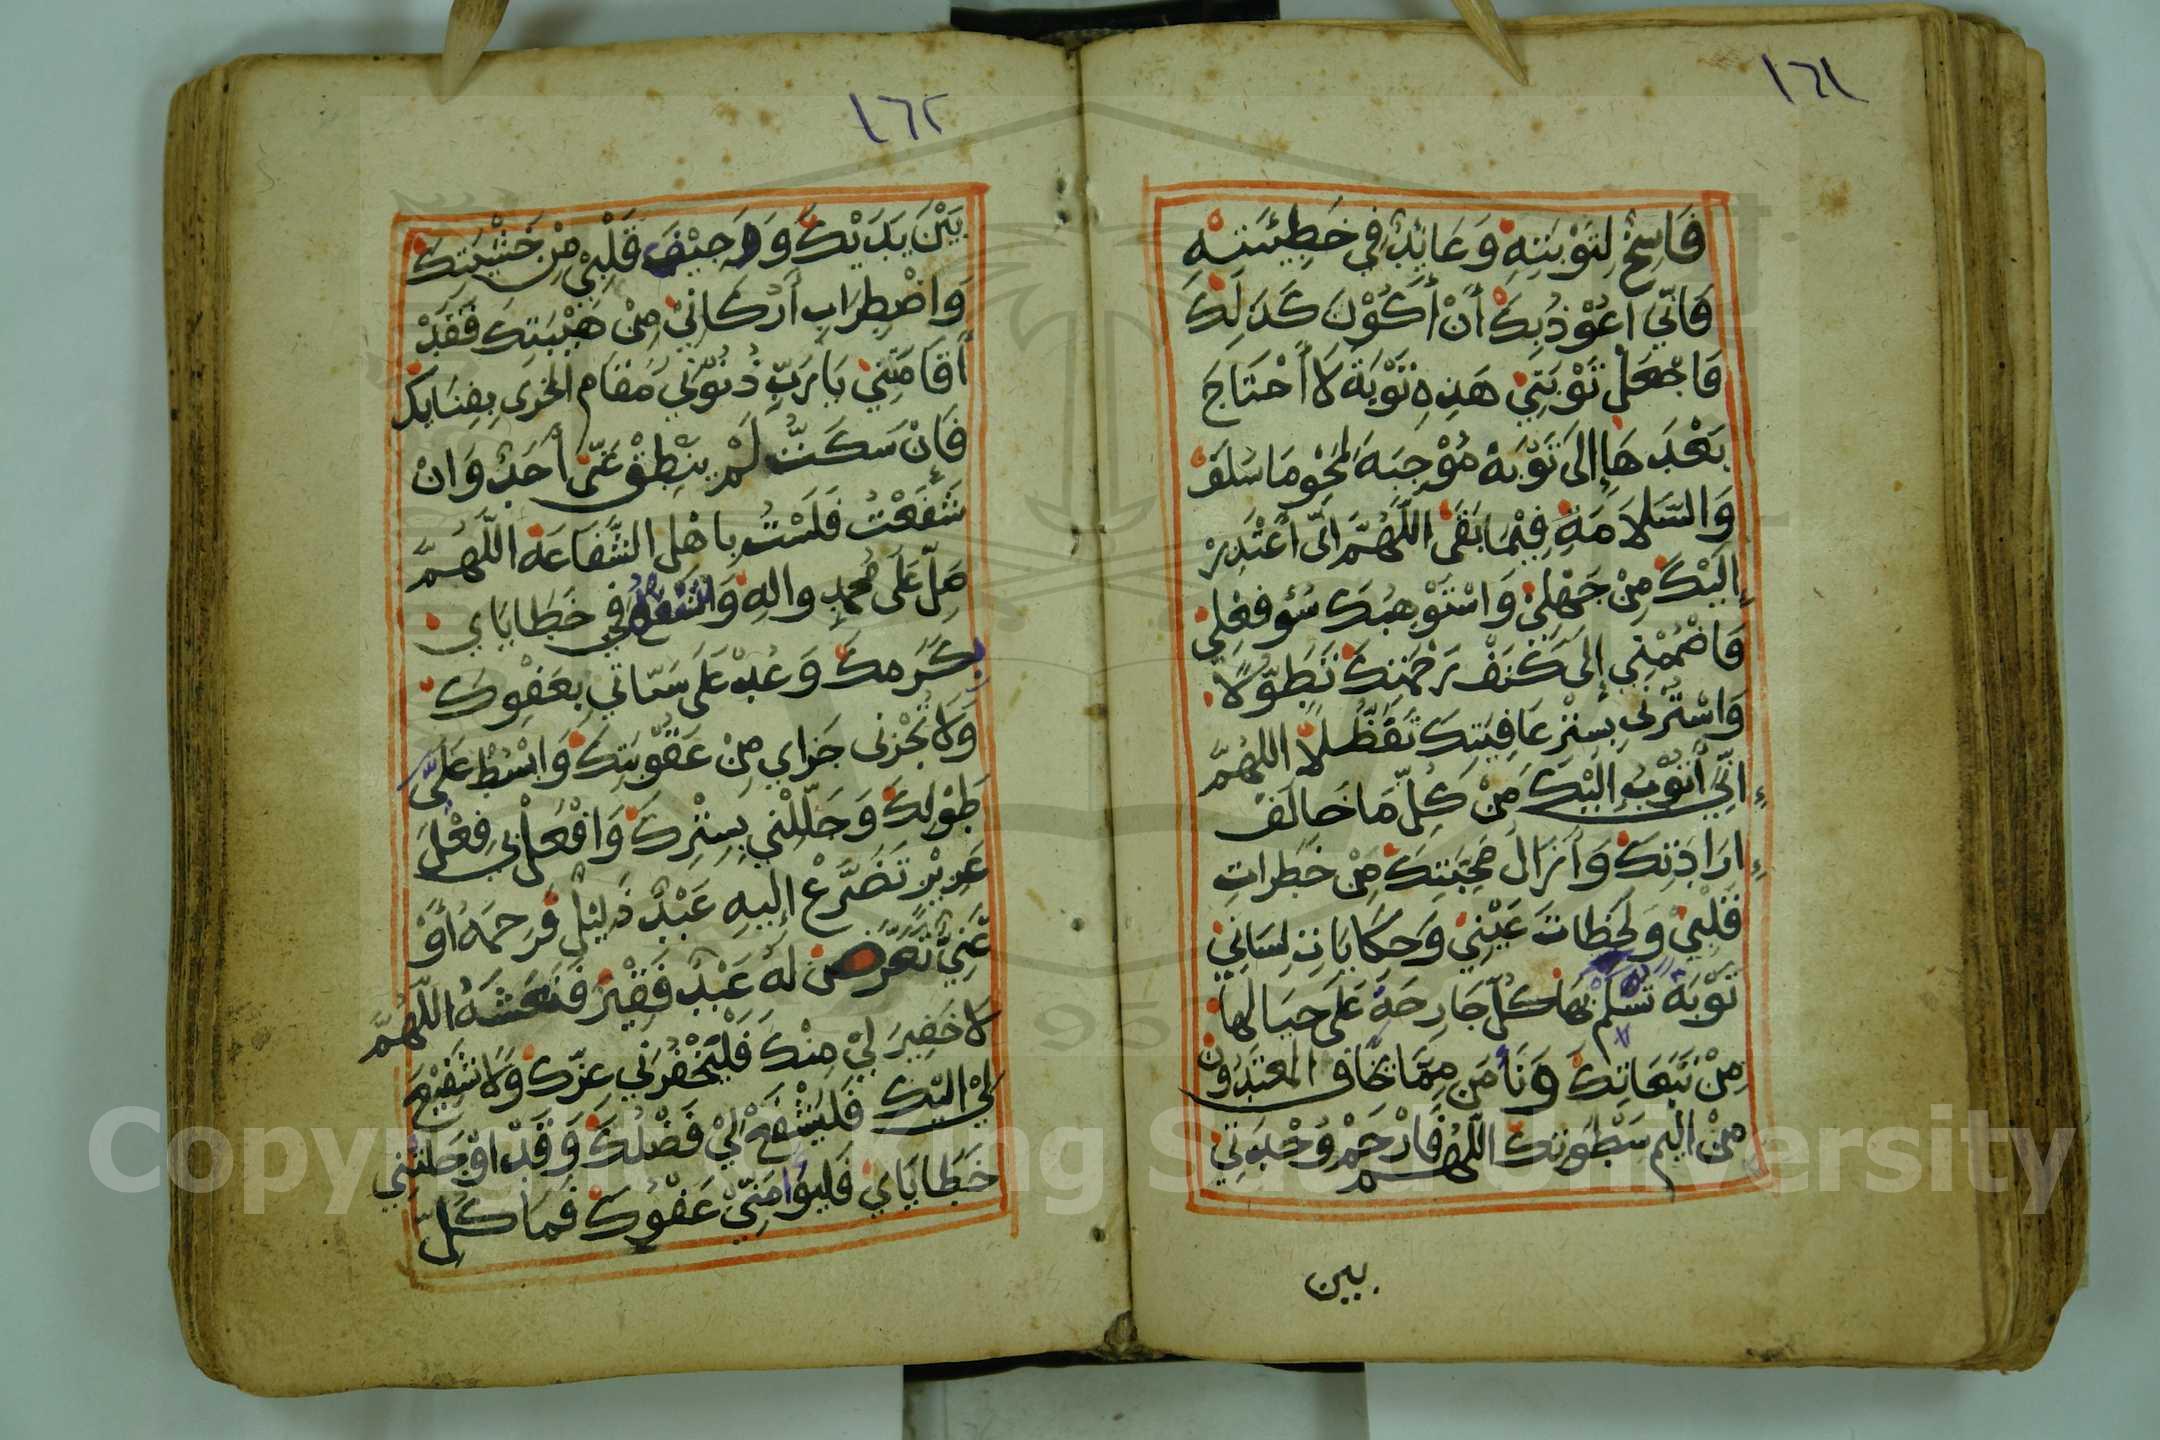 ١٦١
فَاسِخٌ لِتَوْبَتِهِ وَعَائِدٌ فِي خَطِيْئَتِهِ
فَانِّي اَعُوْذُ بِكَ أَنْ أَكُوْنَ كَذَلِكَ
فَاجْعَلْ تَوْبَتِي هَذِهِ تَوْبَةً لَا أَحْتَاجُ
بَعْدَهَا إِلَى تَوْبَةٍ تَوْبَةً مُوْجِبَةً لِمَحْوِ مَا سَلَفَ
وَالسَّلَامَةِ فِيْمَا بَقَى اَللَّهُمَّ اِنِّى أَعْتَذِرُ
إِلَيْكَ مِنْ جَهْلِيْ وَاسْتَوْهِبُكَ سُؤَ فِعْلِي
فَاضْمُمْنِي إِلَى كَنَفِ رَحْمَتِكَ تَطَوُّلًا
وَاسْتُرْنِي بِسِتْرِ عَافِيَتِكَ تَفَضُّلًا اللهُمَّ
إِنِّي أَتُوْبُ إِلَيْكَ مِنْ كُلِّ مَا خَالَفَ
اِرَادَتِكَ وَأَزَالَ مَحَبَّتِكَ مِنْ خَطَرَاتِ
قَلْبِيْ وَلَحَظَاتِ عَيْنِيْ وَحِكَايَاتِ لِسَانِي
تَوْبَةً تَسْلَمُ بِهَا كُلُّ جَارِحَةٍ عَلَى حِيَالِهَا
مِنْ تَبَعَاتِكَ وَتَأْمَنُ مِمَّا يَخَافُ المُعْتَدُوْنَ
مِنْ اَلِيْمِ سَطَوَتِكَ اللّٰهُمَّ فَارْحَمْ وَحْدَتِي
بين
١٦٢
بَيْنَ يَدَيْكَ وَوَجِيْفَ قَلْبِيْ مِنْ خَشْيَتِكَ
وَاضْطِرَابِ أَرْكَانِيْ مِنْ هَيْبَتِكَ فَقَدْ
أَقَامَتْنِي يَا رَبِّ ذُنُوْبِي مَقَامَ الْخِزْىِ بِفِنَايِكَ
فَإِنْ سَكَتُّ لَمْ يَنْطِقْ عَنِّى أَحَدٌ وَانْ
شَفَعْتُ فَلَسْتُ بِاهْلِ الشَّفَاعَةِ اللَّهُمَّ
صَلِّ عَلَى مُحَمَّدٍ وَالِهِ وَشَفِّعْ فِي خَطَايَاي
بِكَرَمِكَ وَعُدْ عَلَى سَيّاتي بِعَفْوِكَ
وَلَا تَجْزِنى جَزَاي مِنْ عَقُوْبَتِكَ وَابْسُطْ عَلَيَّ
طَوْلَكَ وَجَلِّلْنِي بِسِتْرِكَ وَافْعَلْ بِي فِعْلَ
عَزِيْزٍ تَضَرَّعَ إِلَيهِ عَبْدٌ ذَلِيْلٌ فَرَحِمَهُ أَوْ
غَنِيٍّ تَعَرَّضَ لَهُ عَبْدٌ فَقِيْرٌ فَنَعَشَهُ اللّٰهُمَّ
لَا خَفِيْرَ لِيْ مِنْكَ فَلْيَخْفُرْنِي عِزُّكَ وَلَا شَفِيْعَ
لِيْ اليْكَ فَلْيَشْفَعْ لِيْ فَضْلُكَ وَقَدْ اوْجَلَتْنِي
خَطَايَايَ فَليُؤَامِنِّيْ عَفْوُكَ فَمَا كُلِّ